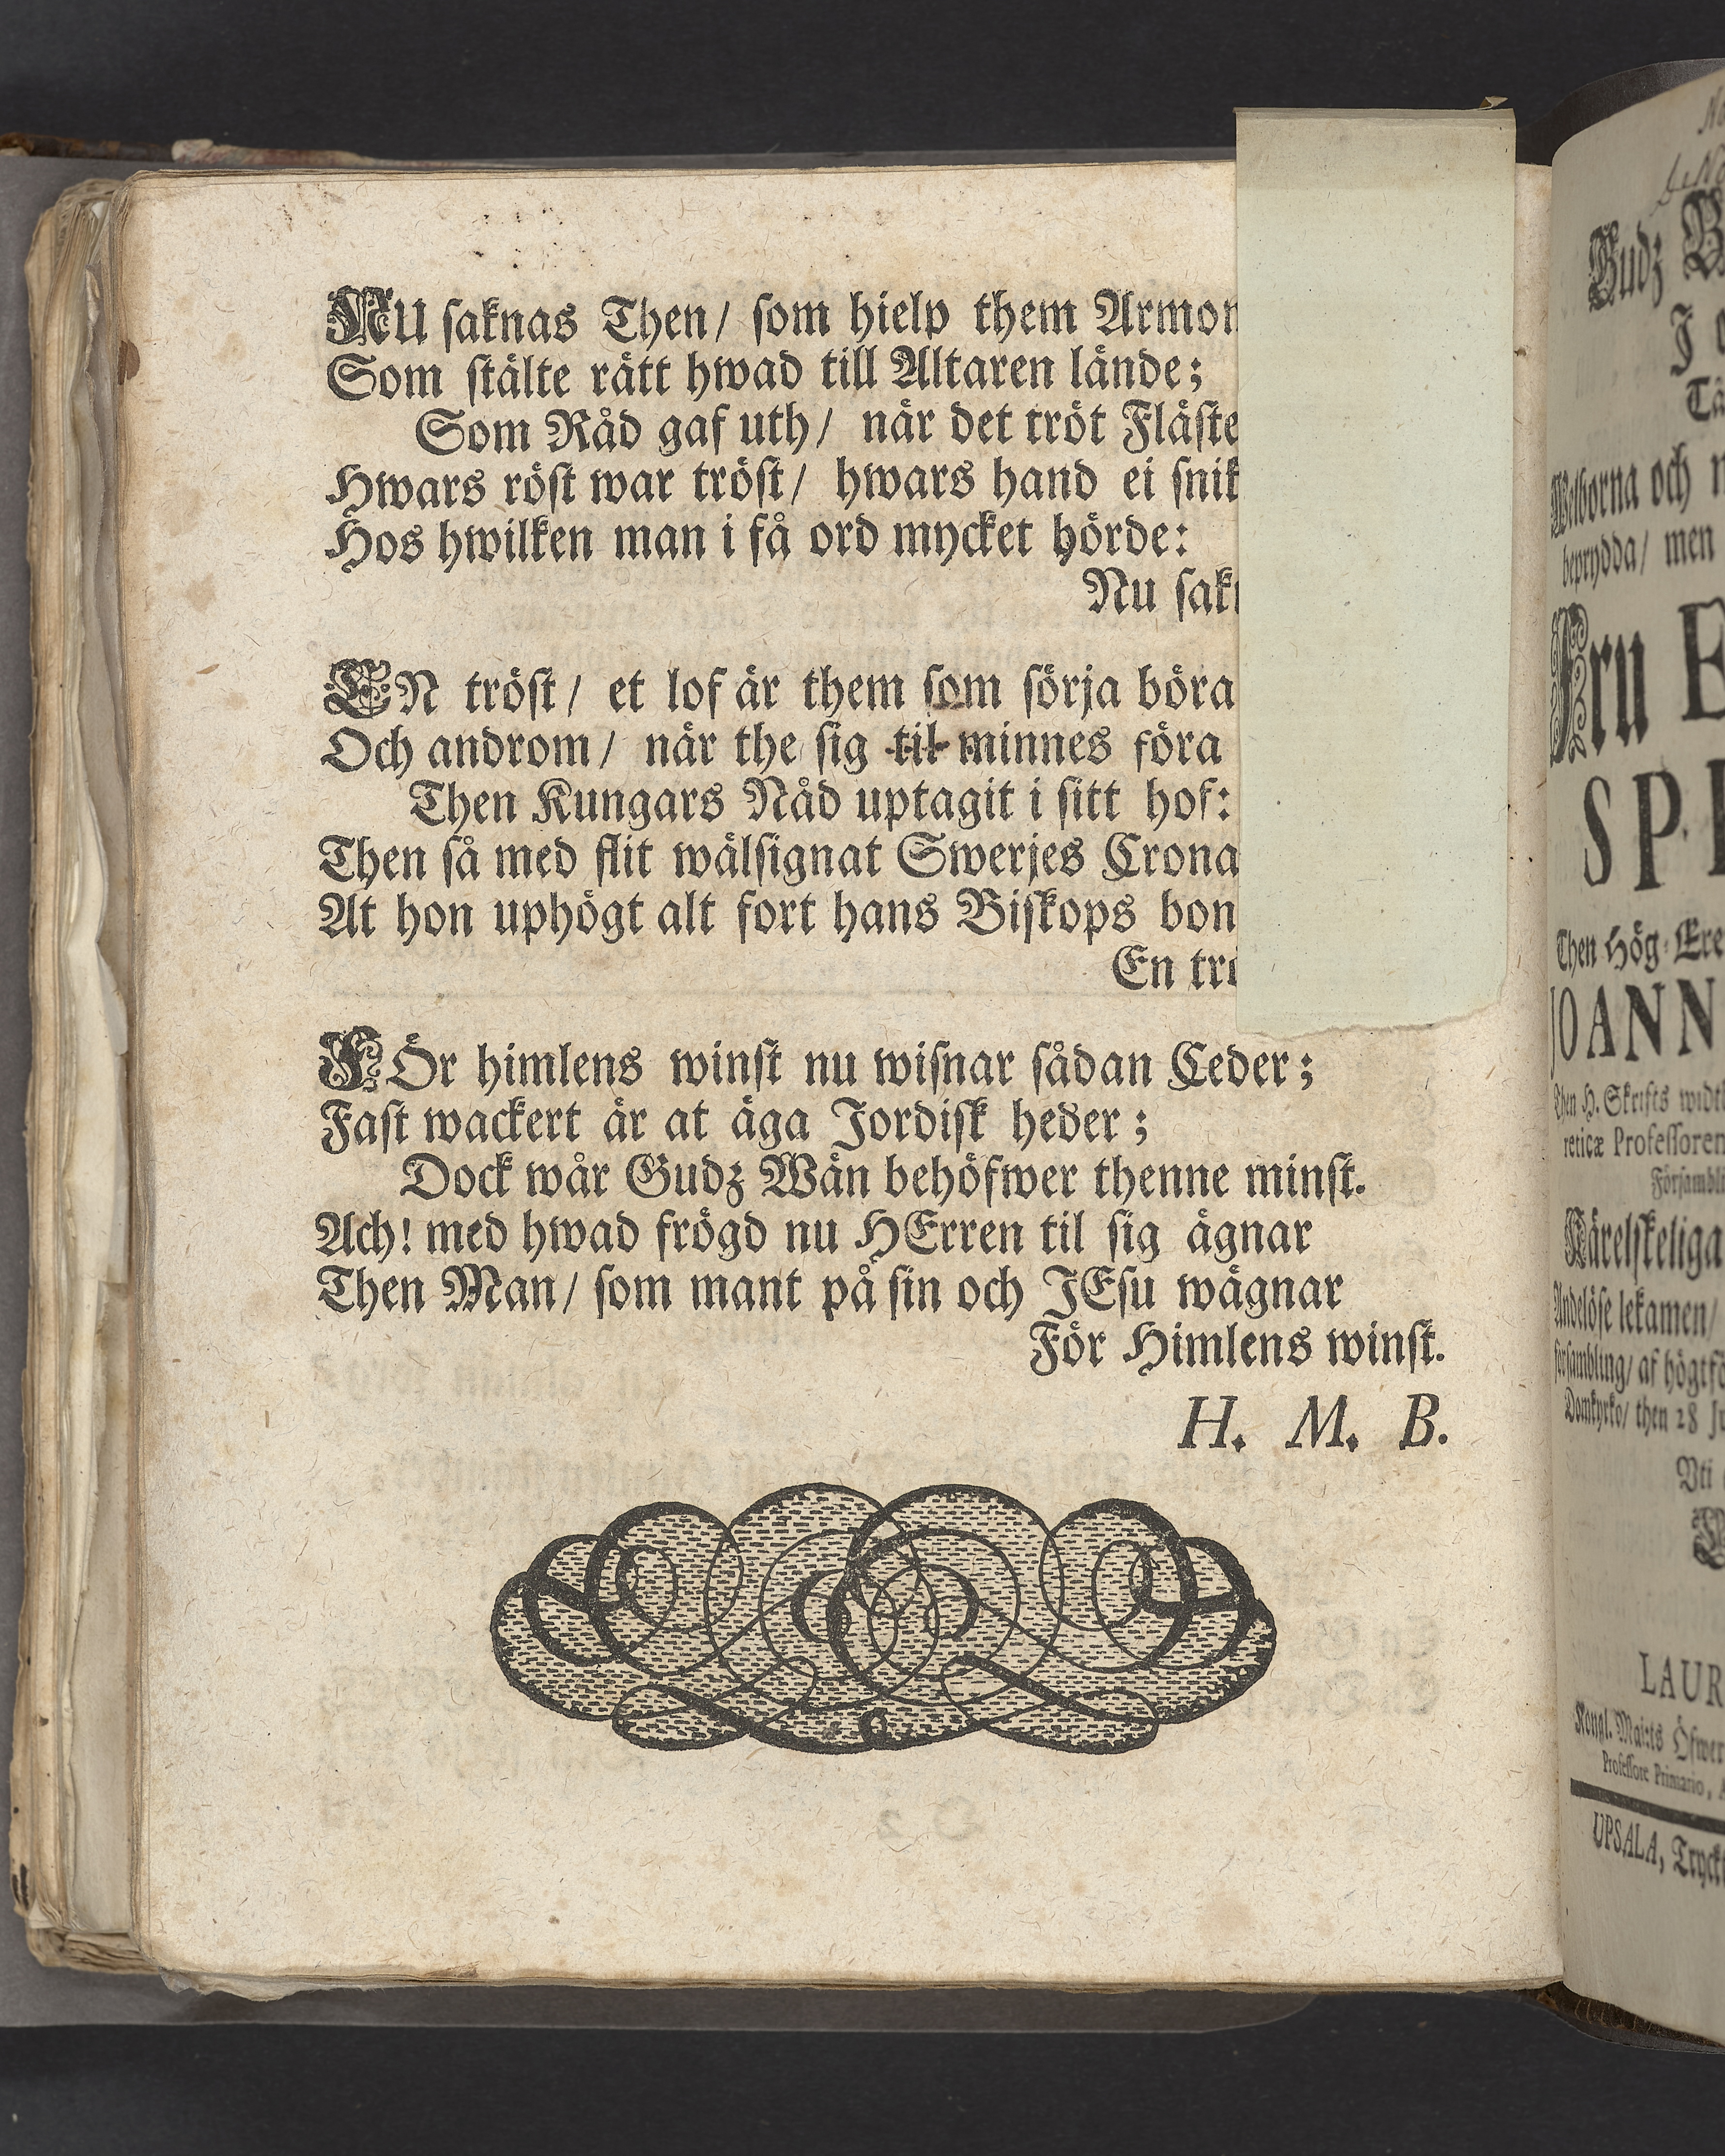 NU saknas Then/ som hielp them
Som stälte rätt hwad till Altaren lände;
Som Råd gaf uth/ när det tröt
Hwars röst war tröst/ hwars hand ei
Hos hwilken man i få ord mycket hörde:
Nu
EN tröst/ et lof är them som sörja böra
Och androm/ när the sig til minnes föra
Then Kungars Nåd uptagit i sitt hof:
Then så med flit wälsignat Swerjes Crona
At hon uphögt alt fort hans Biskops
En
FÖr himlens winst nu wisnar sådan Ceder;
Fast wackert är at äga Jordisk heder;
Dock wår Gudz Wän behöfwer thenne minst.
Ach! med hwad frögd nu HErren til sig ägnar
Then Man/ som mant på sin och JEsu wägnar
För Himlens winst.
H. M. B.
Gudz
Welborna och
beprydda/ men
Fru
Then Hög-
Then H. Skrifts
reticæ
Kärelskeliga
Andelöse lekamen/
försambling/ af
Domkyrko/ then 28
Vti
Kongl. Maj:ts
Professore Primario,
UPSALA,